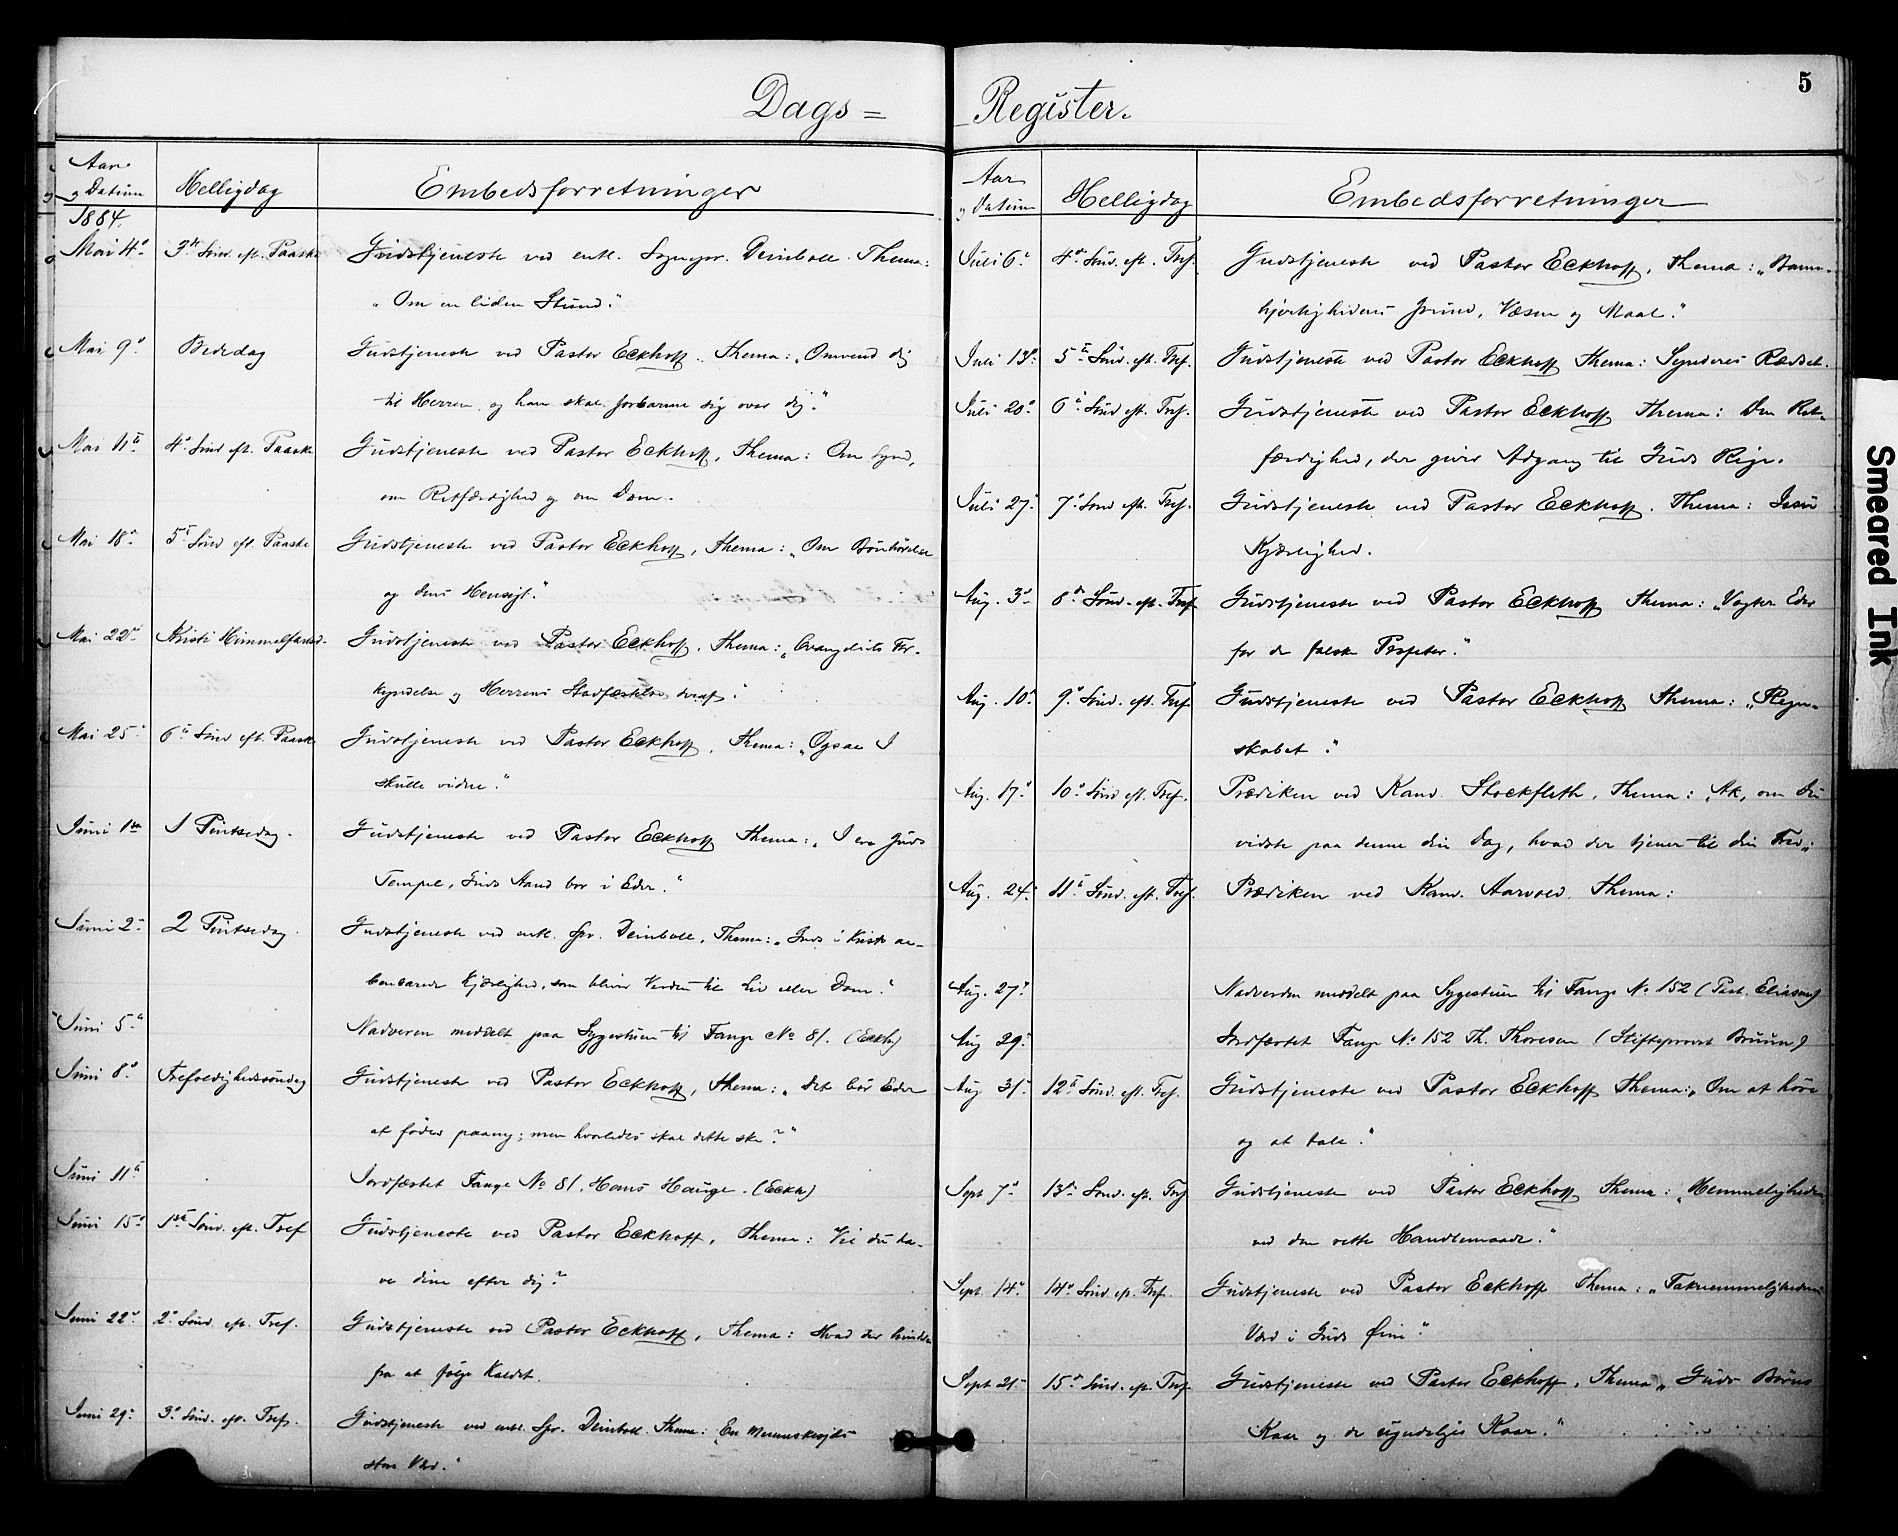 Dags=
Aar
og Datum
Helligdag
Embedsforretninger
1884.
Mai 4de 3die Sønd. eft. Paaske Gudstjeneste ved entl. Sognepr. Deinboll. Thema:
„Om en liden Stund."
Mai 9de Bededag Gudstjeneste ved Pastor Eckhoff. Thema: „Omvend dig
til Herren og han skal forbarme sig over dig."
Mai 11te 4de Sønd. eft. Paaske Gudstjeneste ved Pastor Eckhoff, Thema: Om Synd,
om Retfærdighed og om Dom.
Mai 18de 5te Sønd. eft. Paaske Gudstjeneste ved Pastor Eckhoff, Thema: „Om Bønhørelse
og dens Hensigt."
Mai 22de Kristi Himmelfartsd. Gudstjeneste ved Pastor Eckhoff. Thema: „Evangeliets For-
kyndelse og Herrens Stadfæstelse deraf."
Mai 25de 6te Sønd. eft. Paaske Gudstjeneste ved Pastor Eckhoff, Thema: „Ogsaa I
skulle vidne."
Juni 1ste 1 Pintsedag. Gudstjeneste ved Pastor Eckhoff Thema: „I ere Guds
Tempel, Guds Aand bor i Eder."
Juni 2den 2 Pintsedag. Gudstjeneste ved entl. Spr. Deinboll, Thema: „Guds i Kristo aa-
benbarede Kjærlighed, som bliver Verden til Liv eller Dom."
Juni 5te Nadveren meddelt paa Sygestuen til Fange No 81. (Eckh.)
Juni 8de Trefoldighedssøndag Gudstjeneste ved Pastor Eckhoff, Thema: „Det bør Eder
at fødes paany; men hvorledes skal dette ske?"
Juni 11te Jordfæstet Fange No 81, Hans Hauge. (Eckh.)
Juni 15de 1ste Sønd. eft. Tref Gudstjeneste ved Pastor Eckhoff, Thema: Vil du ha-
ve dine efter dig?
Juni 22de 2den Sønd. eft. Tref. Gudstjeneste ved Pastor Eckhoff, Thema: Hvad der hindrer
fra at følge Kaldet.
Juni 29de 3die Sønd. eft. Tref. Gudstjeneste ved entl. Spr. Deinboll. Thema: „En Menneskesjæls
store Værd."
Register.
5
Aar
og Datum
Helligdag
Embedsforretninger
Juli 6te 4de Sønd. eft. Tref. Gudstjeneste ved Pastor Eckhoff, Thema: „Barm-
hjertighedens Grund, Væsen og Maal."
Juli 13de 5te Sønd. eft. Tref. Gudstjeneste ved Pastor Eckhoff Thema: Synderes Rædsel.
Juli 20de 6te Sønd eft. Tref. Gudstjeneste ved Pastor Eckhoff Thema: Den Ret-
færdighed, der giver Adgang til Guds Rige.
Juli 27de 7de Sønd eft. Tref. Gudstjeneste ved Pastor Eckhoff. Thema: Jesu
Kjærlighed.
Aug. 3die 8de Sønd. eft. Tref Gudstjeneste ved Pastor Eckhoff Thema: „Vogter Eder
for de falske Profeter."
Aug. 10de 9de Sønd. eft. Tref. Gudstjeneste ved Pastor Eckhoff Thema: „Regn-
skabet."
Aug. 17de 10de Sønd eft. Tref. Prædiken ved Kand. Stockfleth, Thema: „Ak, om du
vidste paa denne din Dag, hvad der tjener til din Fred."
Aug. 24de 11te Sønd. eft. Tref. Prædiken ved Kand. Aarvold. Thema:
Aug. 27de Nadverden meddelt paa Sygestuen til Fange No 152 (Past. Eliasen)
Aug 29de Jordfæstet Fange No 152 Th. Thoresen (Stiftsprovst Bruun)
Aug 31te 12te Sønd. eft. Tref. Gudstjeneste ved Pastor Eckhoff Thema: „Om at høre
og at tale."
Sept 7de 13de Sønd. eft. Tref Gudstjeneste ved Pastor Eckhoff Thema: „Hemmeligheden
ved den rette Handlemaade."
Sept 14de 14de Sønd. ef. Tref. Gudstjeneste ved Pastor Eckhoff Thema: „Taknemmelighedens
Værd i Guds Øine."
Sept 21de 15de Sønd. ef. Tref Gudstjeneste ved Pastor Eckhoff, Thema „Guds Børns
Kaar og de ugudeliges Kaar."
Smeared Ink